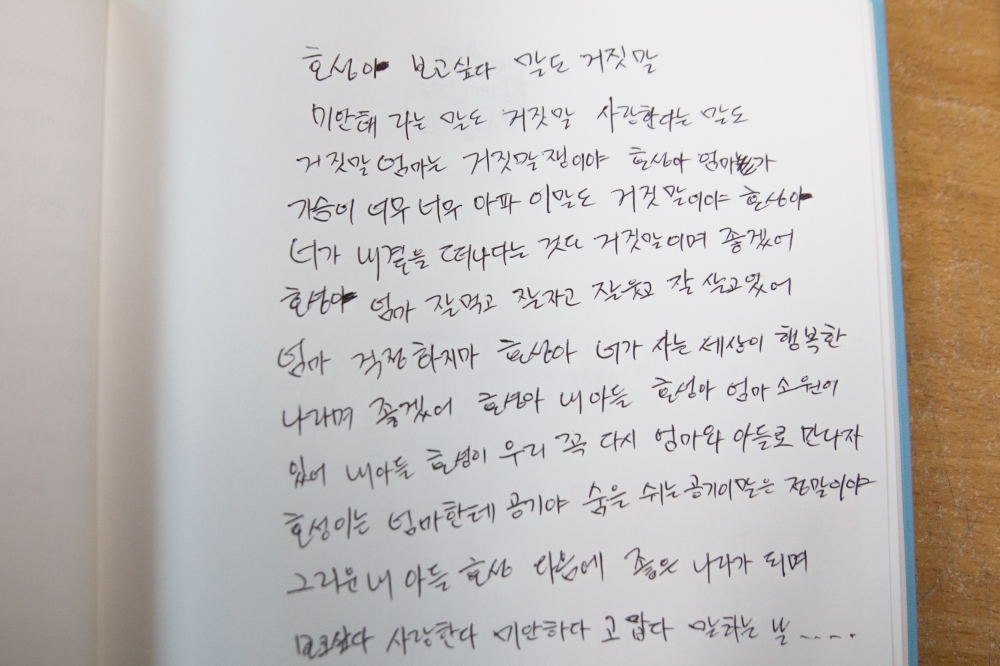 호성아 보고싶다 말도 거짓말
미안해 라는 말도 거짓말 사랑한다는 말도
거짓말 엄마는 거짓말쟁이야 호성아 엄마가
가슴이 너무 너무 아파 이말도 거짓말이야 호성아
너가 내곁을 떠나다는 것도 거짓말이며 좋겠어
호성아 엄마 잘먹고 잘자고 잘웃고 잘 살고있어
엄마 걱정하지마 호성아 너가 사는 세상이 행복한
나라며 좋겠어 호성아 내아들 호성아 엄마 소원이
있어 내아들 호성이 우리 꼭 다시 엄마와 아들로 만나자
호성이는 엄마한테 공기야 숨을 쉬는공기이말은 정말이야
그리운 내 아들 호성 다음에 좋은 나라가 되며
보고싶다 사랑한다 미안하다 고맙다 말하는 날 .....